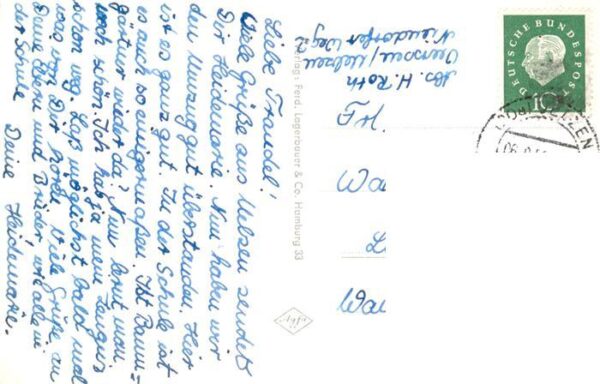 Liebe Traudel!
Viele Grüße aus Uelzen sendet
Dir Heidemarie. Nun haben wir
den Umzug gut überstanden. Hier
ist es ganz gut. In der Schule ist
es auch so einigermaßen. Ist Baum-
gärtner wieder da? Nun kennt man
noch schön. Ich habe ja mein Zeugnis
schon weg. Laß möglichst bald mal
was von Dir hören. Viele Grüße an
Deine Eltern und Brüder, wie alle in
der Schule
Deine Heidemarie.
Verlag: Ferd. Lagerbauer & Co. Hamburg 33
effge
Abs. H. Roth
Uelzen
Niendorfer Weg 2
DEUTSCHE BUNDESPOST
10